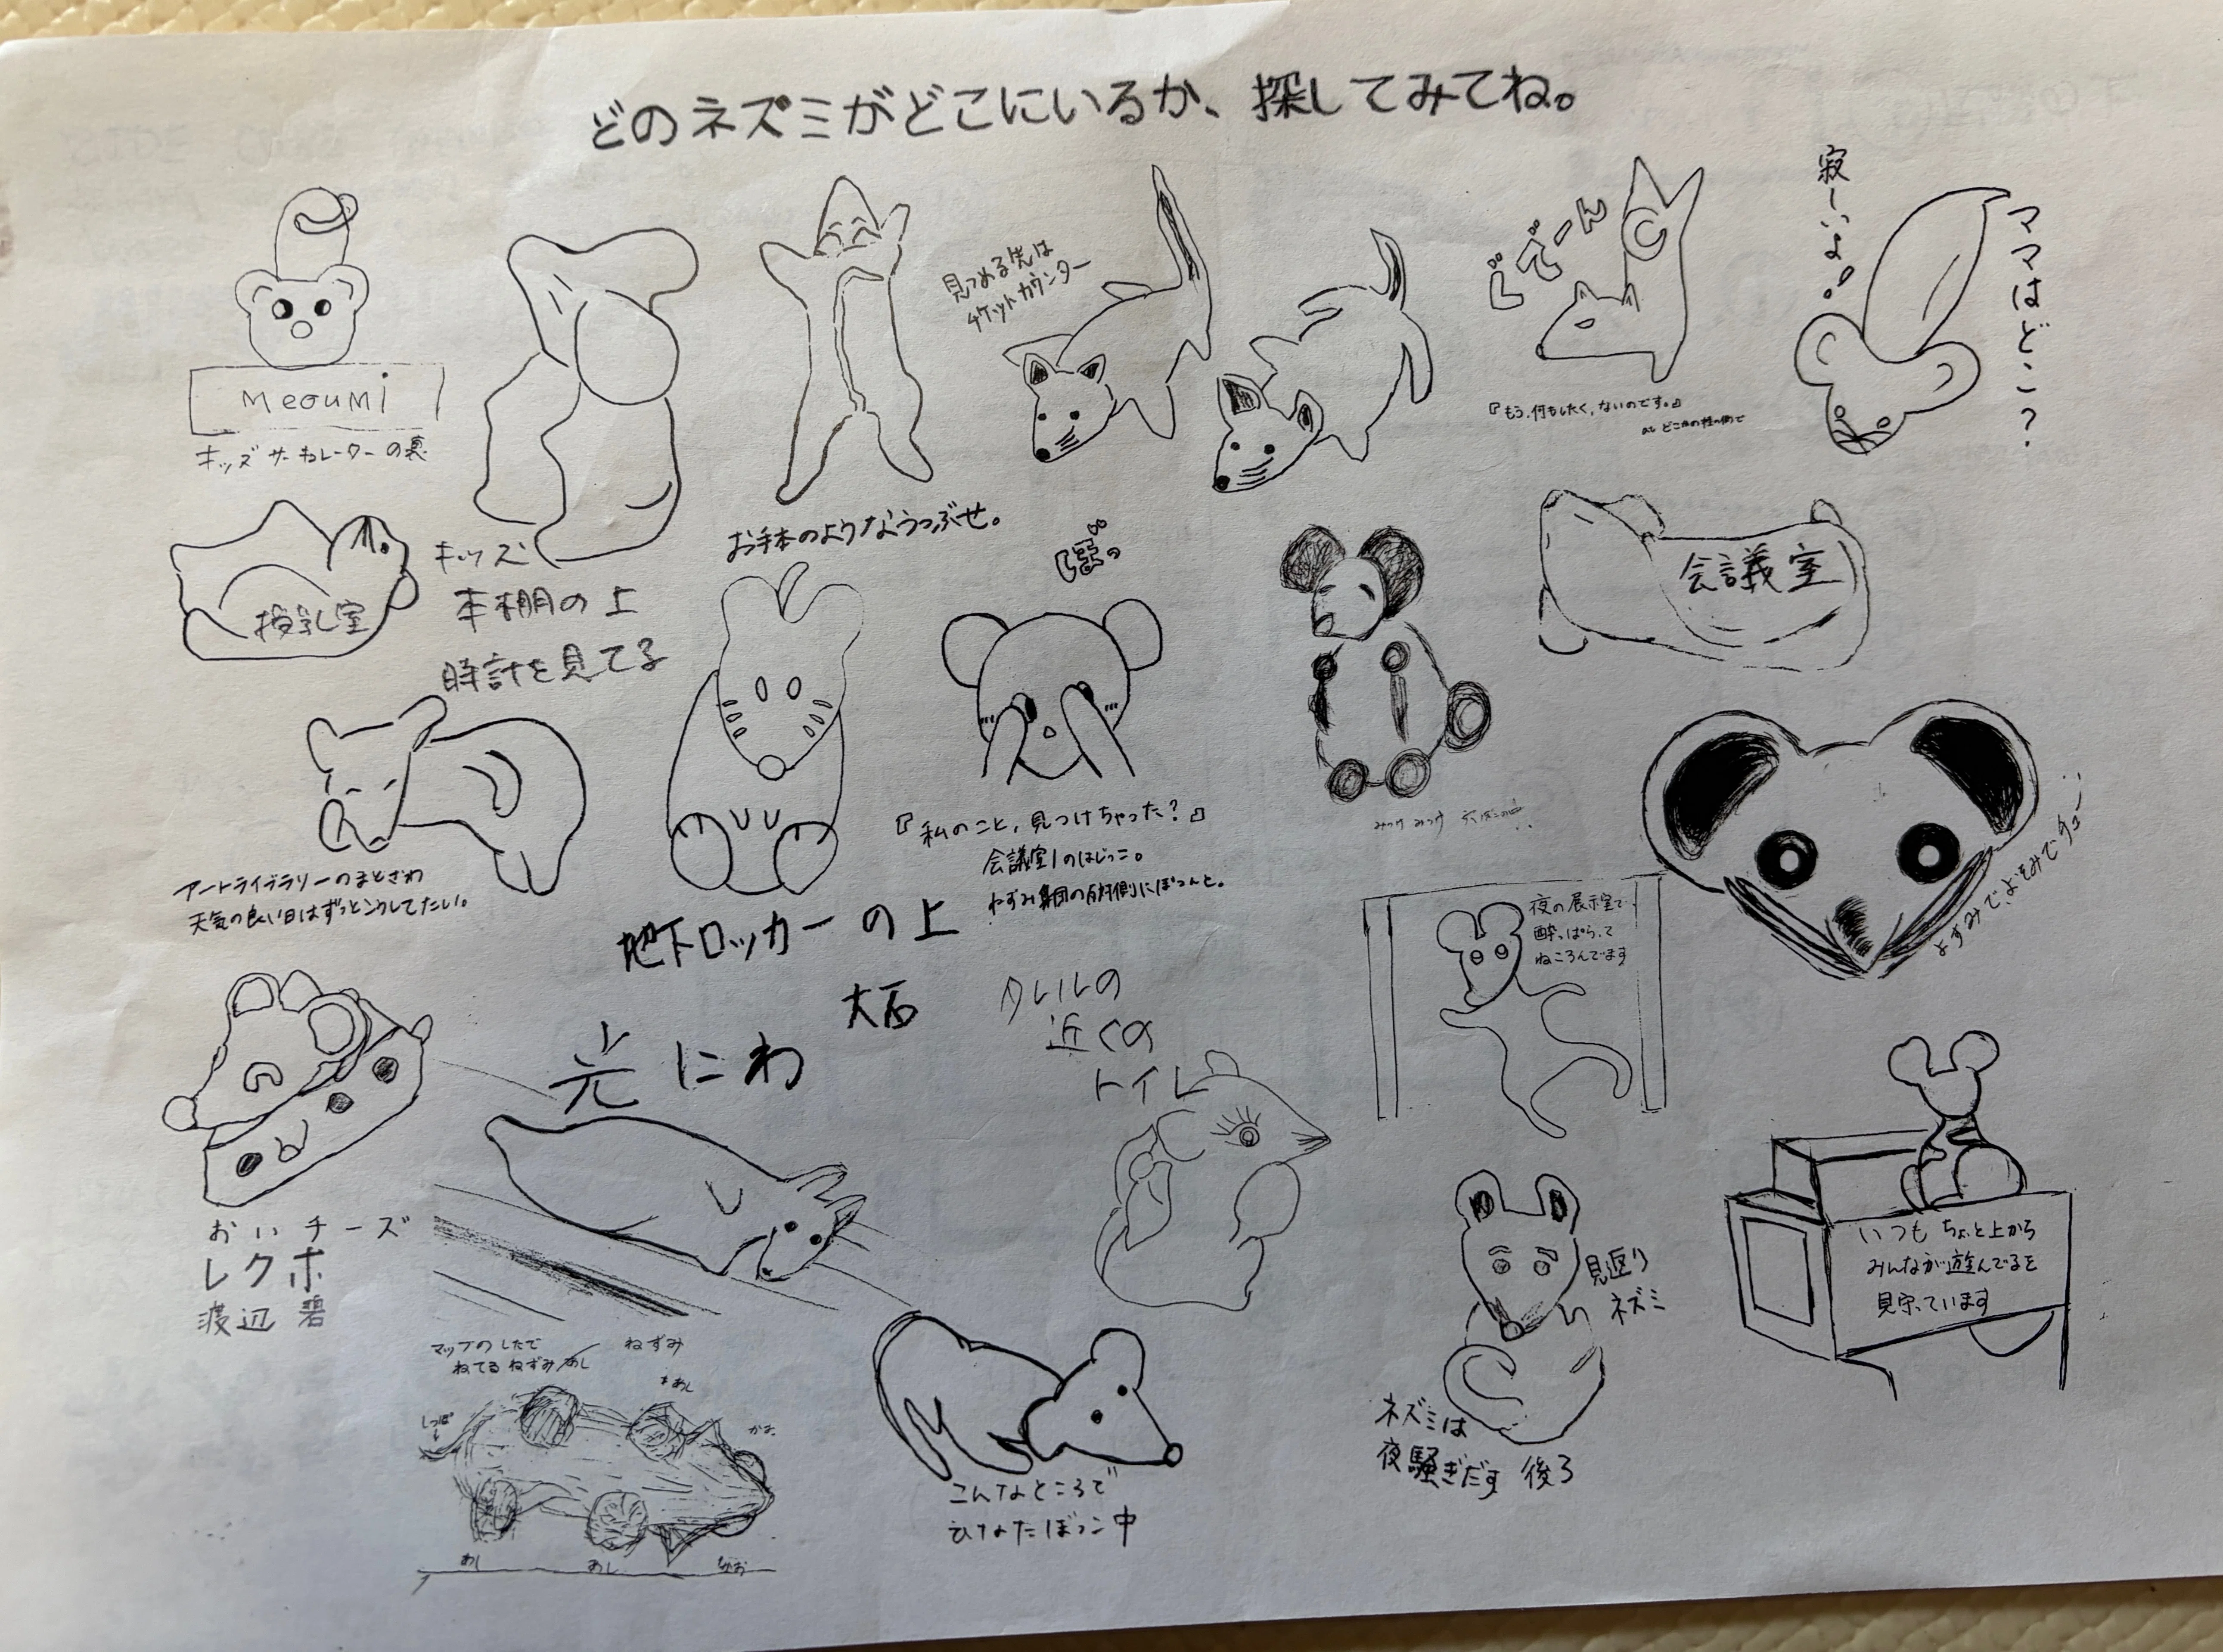 どのネズミがどこにいるか、探してみてね。
meoumi
キッズサーキュレーターの裏
キッズ
本棚の上
時計を見てる
お手本のようなうつぶせ。
見つめる先は
チケットカウンター
どでーん
『もう、何もしたく、ないのです。』
寂しいよ
ママはどこ?
授乳室
会議室
『私のこと、見つけちゃった?』
会議室1のはじっこ。
ねずみ集団の反対側にぽつんと。
みっけ みっけ
よすみで、よそみでチュー
アートライブラリーのまどぎわ
天気の良い日はずっとこうしてたい。
地下ロッカーの上
大石
光にわ
近くの
トイレ
夜の展示室で
酔っぱらって
ねころんでます
おいチーズ
レクホ
渡辺 碧
マップのしたで
ねてるねずみ
ねずみ
しっぽ
あし
あし
こんなところで
ひなたぼっこ中
見返り
ネズミ
ネズミは
夜騒ぎだす 後ろ
いつもちょっと上から
みんなが遊んでるを
見守っています